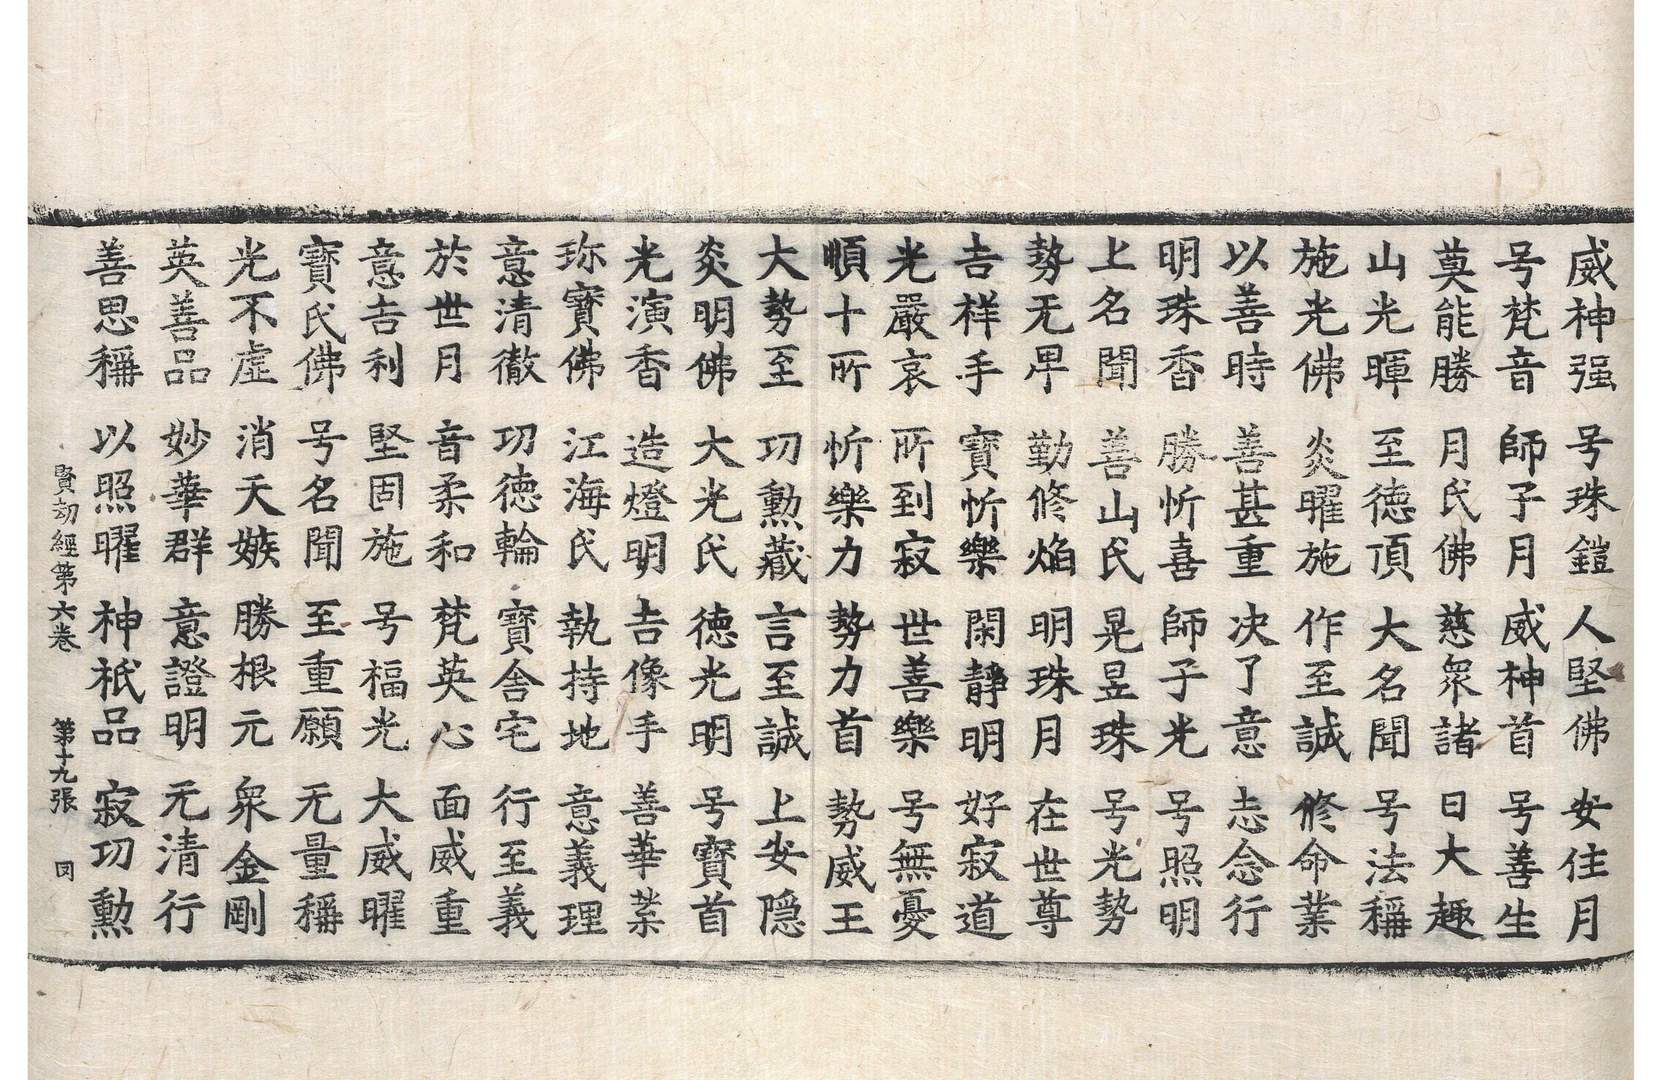 威神强 号珠鎧 人堅佛 安住月
号梵音 師子月 威神首 号善生
莫能勝 月氏佛 慈衆諸 日大趣
山光暉 至德頂 大名聞 号法稱
施光佛 炎曜施 作至誠 修命業
以善時 善甚重 决了意 志念行
明珠香 勝忻喜 師子光 号照明
上名聞 善山氏 晃昱珠 号光勢
勢无 勤修焔 明珠月 在世尊
吉祥手 寶忻樂 閑靜明 好寂道
光嚴哀 所到寂 世善樂 号無憂
順十所 忻樂力 勢力首 勢威王
大勢至 功勳藏 言至誠 上安隱
炎明佛 大光氏 德光明 号寶首
光演香 造燈明 吉像手 善華
珎寶佛 江海氏 執持地 意義理
意清徹 功德輪 寶舍宅 行至義
於世月 音柔和 梵英心 面威重
意吉利 堅固施 号福光 大威曜
寶氏佛 号名聞 至重願 无量稱
光不虛 消天嫉 勝根元 衆金剛
英善品 妙華群 意證明 元清行
善思稱 以照曜 神祇品 寂功勳
賢劫經第六卷 第十九張